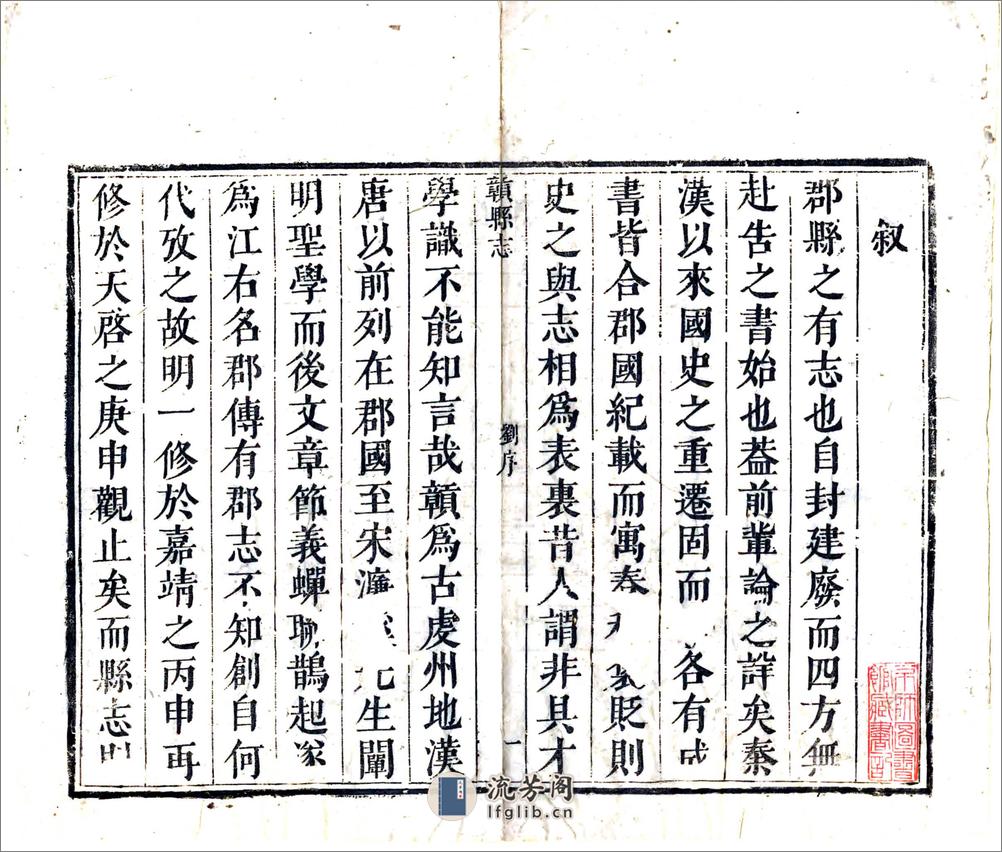 叙
郡縣之有志也自封建廢而四方無
赴告之書始也葢前輩論之詳矣秦
漢以來國史之重遷固而 各有成
書皆合郡國紀載而寓春 貶則
史之與志相爲表裏昔人謂非具才
贛縣志
劉序
一
學識不能知言哉贛爲古虔州地漢
唐以前列在郡國至宋濂 生闡
明聖學而後文章節義蟬聯鵲起遂
爲江右名郡傳有郡志不知創自何
代攷之故明一修於嘉靖之丙申再
修於天啓之庚申觀止矣而縣志
京師圖書館藏書記
流芳阁
lfglib.cn